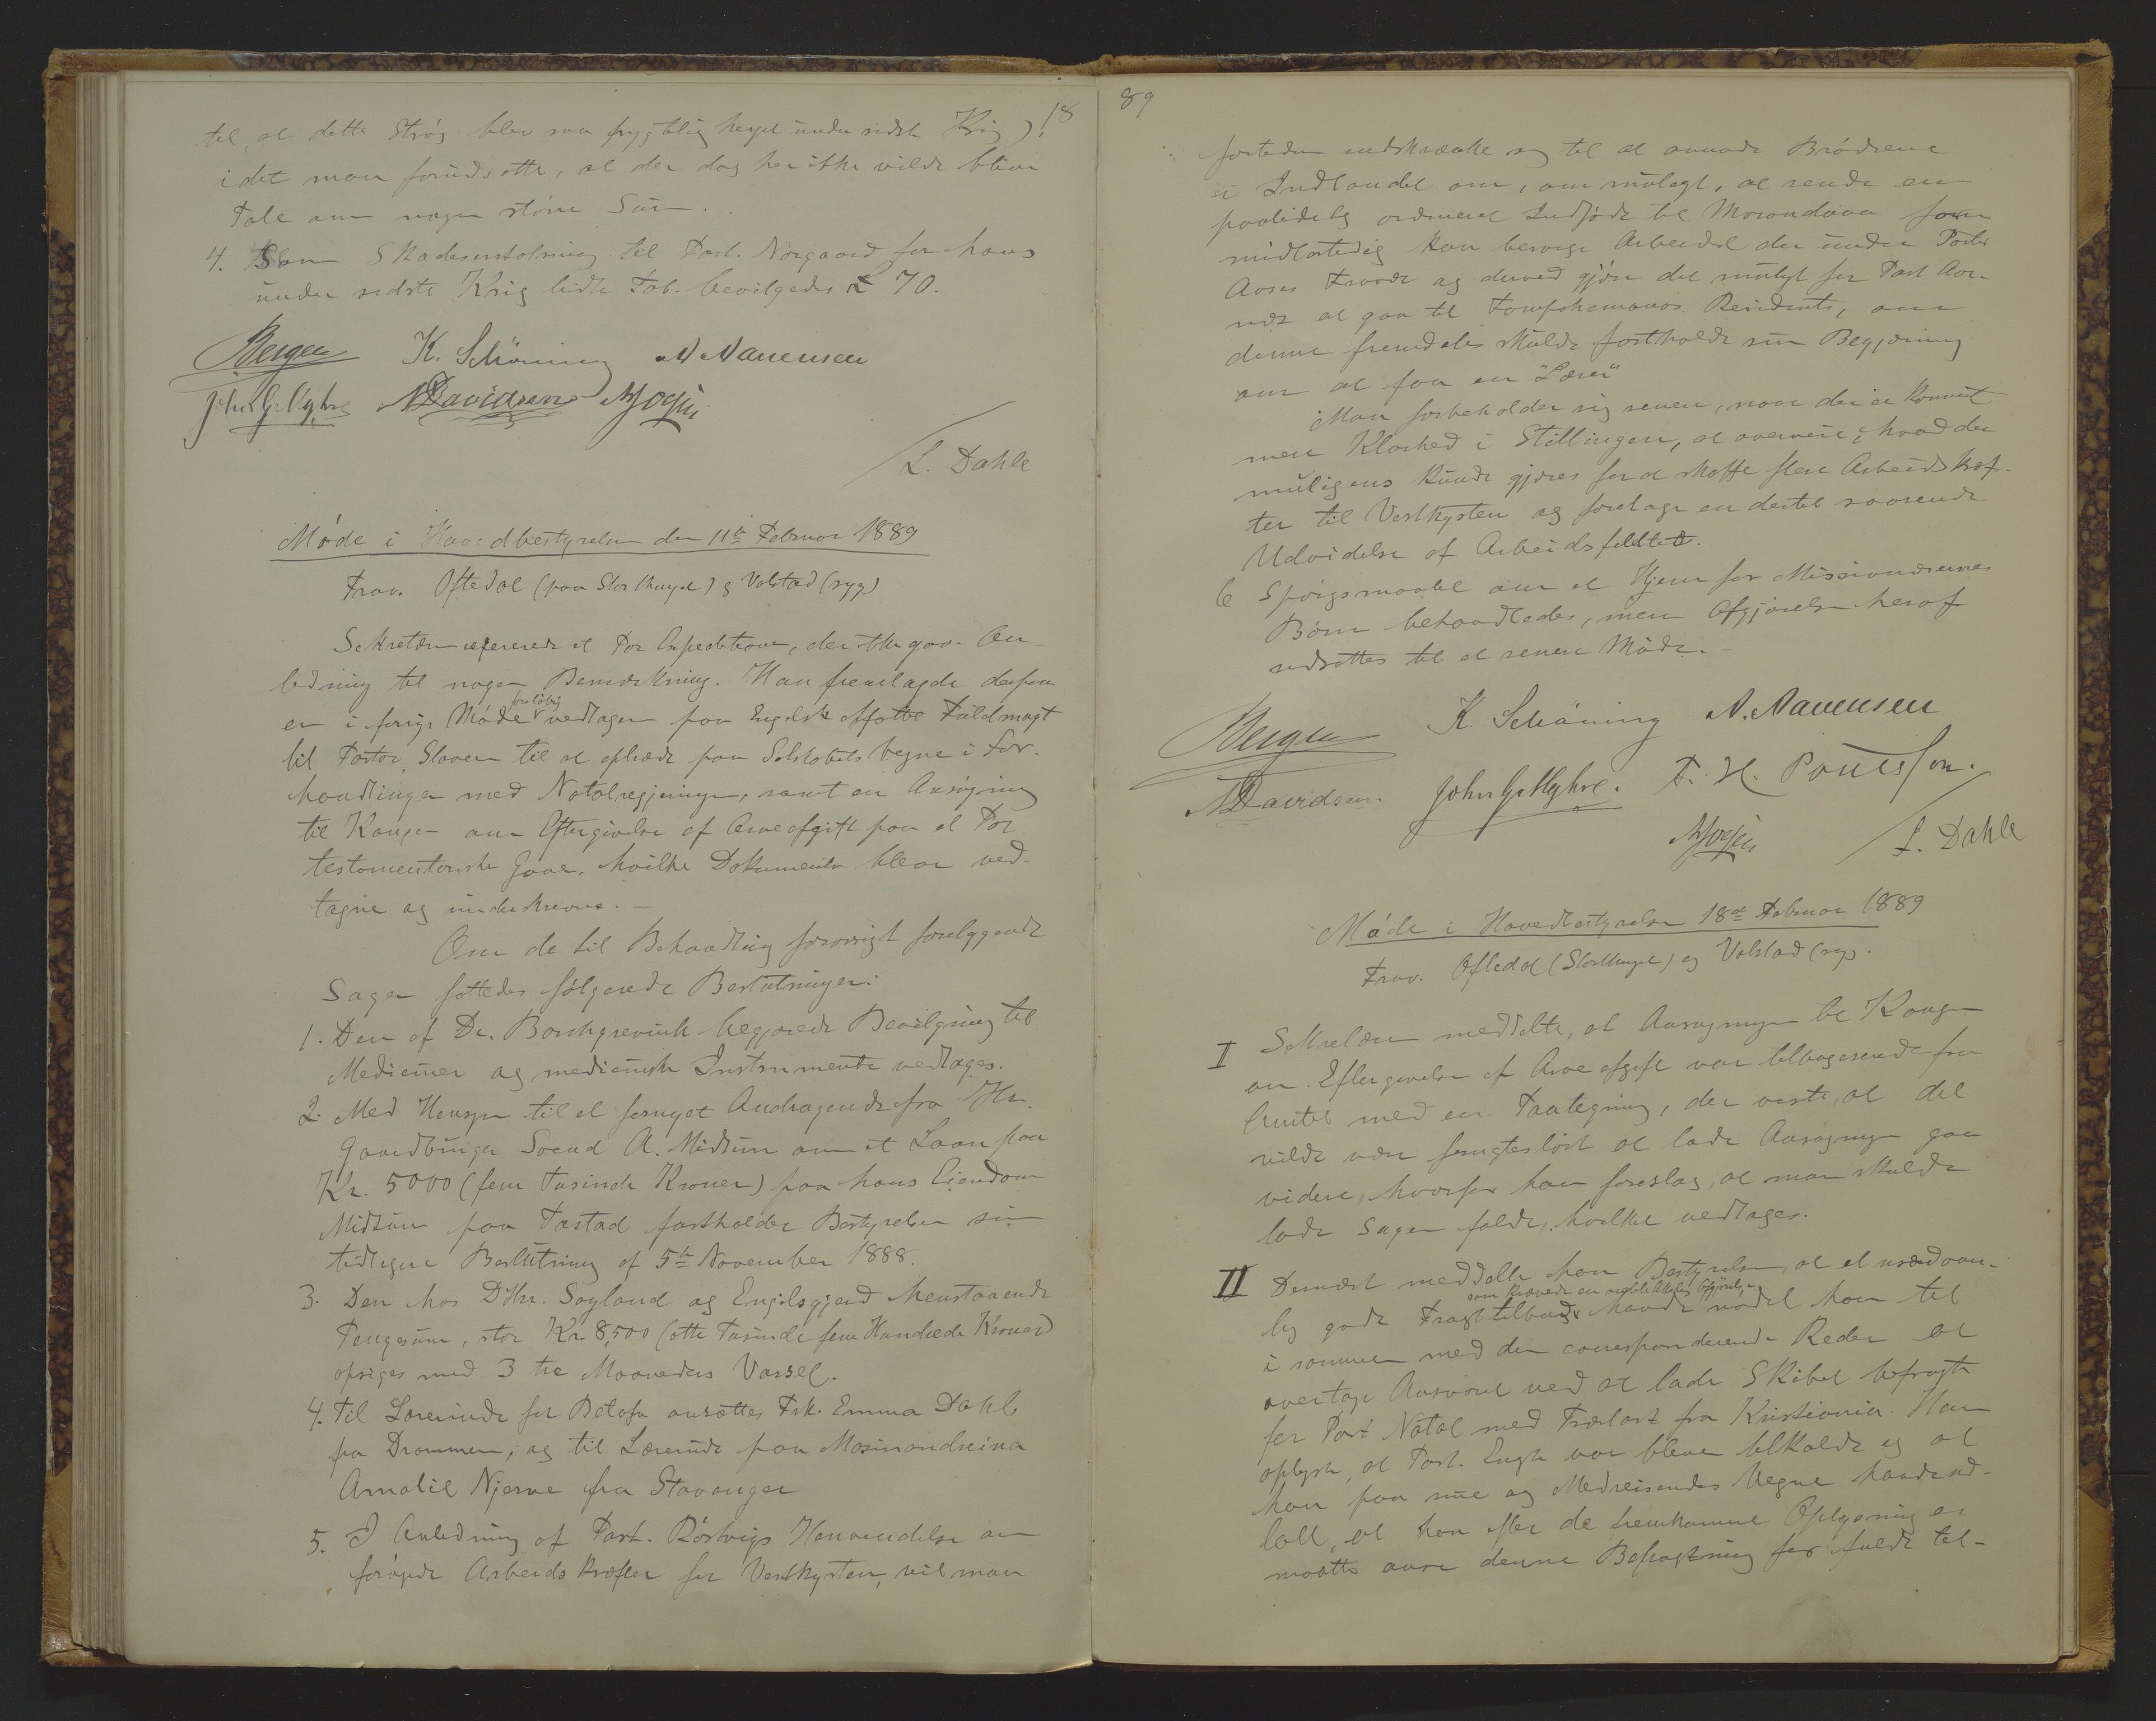 18
til, at dette Strøg blev saa frygtelig herjet under sidste Krig),
idet man forudsatte, at der dog her ikke vilde blive
Tale om nogen større Sum.
4. Som Skadeserstatning til Past. Norgaard for hans
under sidste Krig lidte Tab bevilgedes £ 70.
Bergen K. Schöning N Nanensen
John G. Myhre N Davidsen
L. Dahle
Møde i Hovedbestyrelsen den 11te Februar 1889
Frav. Oftedal (paa Storthinget) og Valstad (syg)
Sekretæren refererede et Par Expeditioner, der ikke gav An-
ledning til nogen Bemærkning. Han fremlagde derpaa
en i forrige Møde foreløbig vedtagen paa Engelsk affattet Fuldmagt
til Pastor Slaven til at optræde paa Selskabets Vegne i For-
handlinger med Natalregjeringen, samt en Ansøgning
til Kongen om Eftergivelse af Arveafgift paa et Par
testamentariske Gaver, hvilke Dokumenter blev ved-
tagne og underskrevne. —
Om de til Behandling forøvrigt foreliggende
Sager fattedes følgende Beslutninger:
1. Den af Dr. Borchgrevink begjærede Bevilgning til
Mediciner og medicinske Instrumenter vedtages.
2. Med Hensyn til et fornyet Andragende fra Hr.
Gaardbruger Svend A. Midsun om et Laan paa
Kr. 5000 (fem Tusinde Kroner) paa hans Eiendom
Midsun paa Tastad fastholder Bestyrelsen sin
tidligere Beslutning af 5te November 1888.
3. Den hos DHrr. Søyland og Engelsgjerd henstaaende
Pengesum, stor Kr. 8,500 (otte Tusinde fem Hundrede Kroner)
opsiges med 3 tre Maaneders Varsel.
4. Til Lærerinde for Betafo ansættes Frk. Emma Dahl
fra Drammen, og til Lærerinde paa Masinandreina
Amalie Njerve fra Stavanger
5. I Anledning af Past. Røstvigs Henvendelse om
forøgede Arbeidskræfter for Vestkysten, vil man
89
forteden indskrænke sig til at anmode Brødrene
i Indlandet om, om muligt, at sende en
paalidelig ordineret Indfødt til Morondava som
midlertidig kan besørge Arbeidet der under Past.
Aases Fravær og derved gjøre det muligt for Past Aar-
nes at gaa til Tompohemanas Residents, om
denne fremdeles skulde fastholde sin Begjæring
om at faa en "Lærer"
Man forbeholder sig senere, naar der er kommet
mere Klarhed i Stillingen, at overveie, hvad der
muligens kunde gjøres for at skaffe flere Arbeidskræf-
ter til Vestkysten og foretage en dertil svarende
Udvidelse af Arbeidsfeltet.
6 Spørgsmaalet om et Hjem for Missionærernes
Børn behandledes, men Afgjørelsen heraf
udsattes til et senere Møde. —
Bergen K. Schöning N. Nanensen
N Davidsen. John G Myhre. T. H. Poulsson.
L. Dahle
Møde i Hovedbestyrelsen 18de Februar 1889
Frav. Oftedal (Storthinget) og Valstad (syg).
I Sekretæren meddelte, at Ansøgningen til Kongen
om Eftergivelse af Arveafgift var tilbagesendt fra
Amtet med en Paategning, der viste, at det
vilde være frugtesløst at lade Ansøgningen gaa
videre, hvorfor han foreslog, at man skulde
lade Sagen falde, hvilket vedtages.
II Dernæst meddelte han Bestyrelsen, at et usædvan-
som krævede en øieblikkelig Afgjørelse,
lig godt Fragttilbud havde nødet ham til
i sammen med den correspanderende Reder at
overtage Ansvaret ved at lade Skibet befragte
for Port Natal med Trælast fra Kristiania. Han
oplyste, at Past. Engh var bleven tilkaldt og at
han paa sine og Medreisendes Vegne havde ud-
talt, at han efter de fremkomne Oplysninger
maatte anse denne Befragtning for fuldt til-